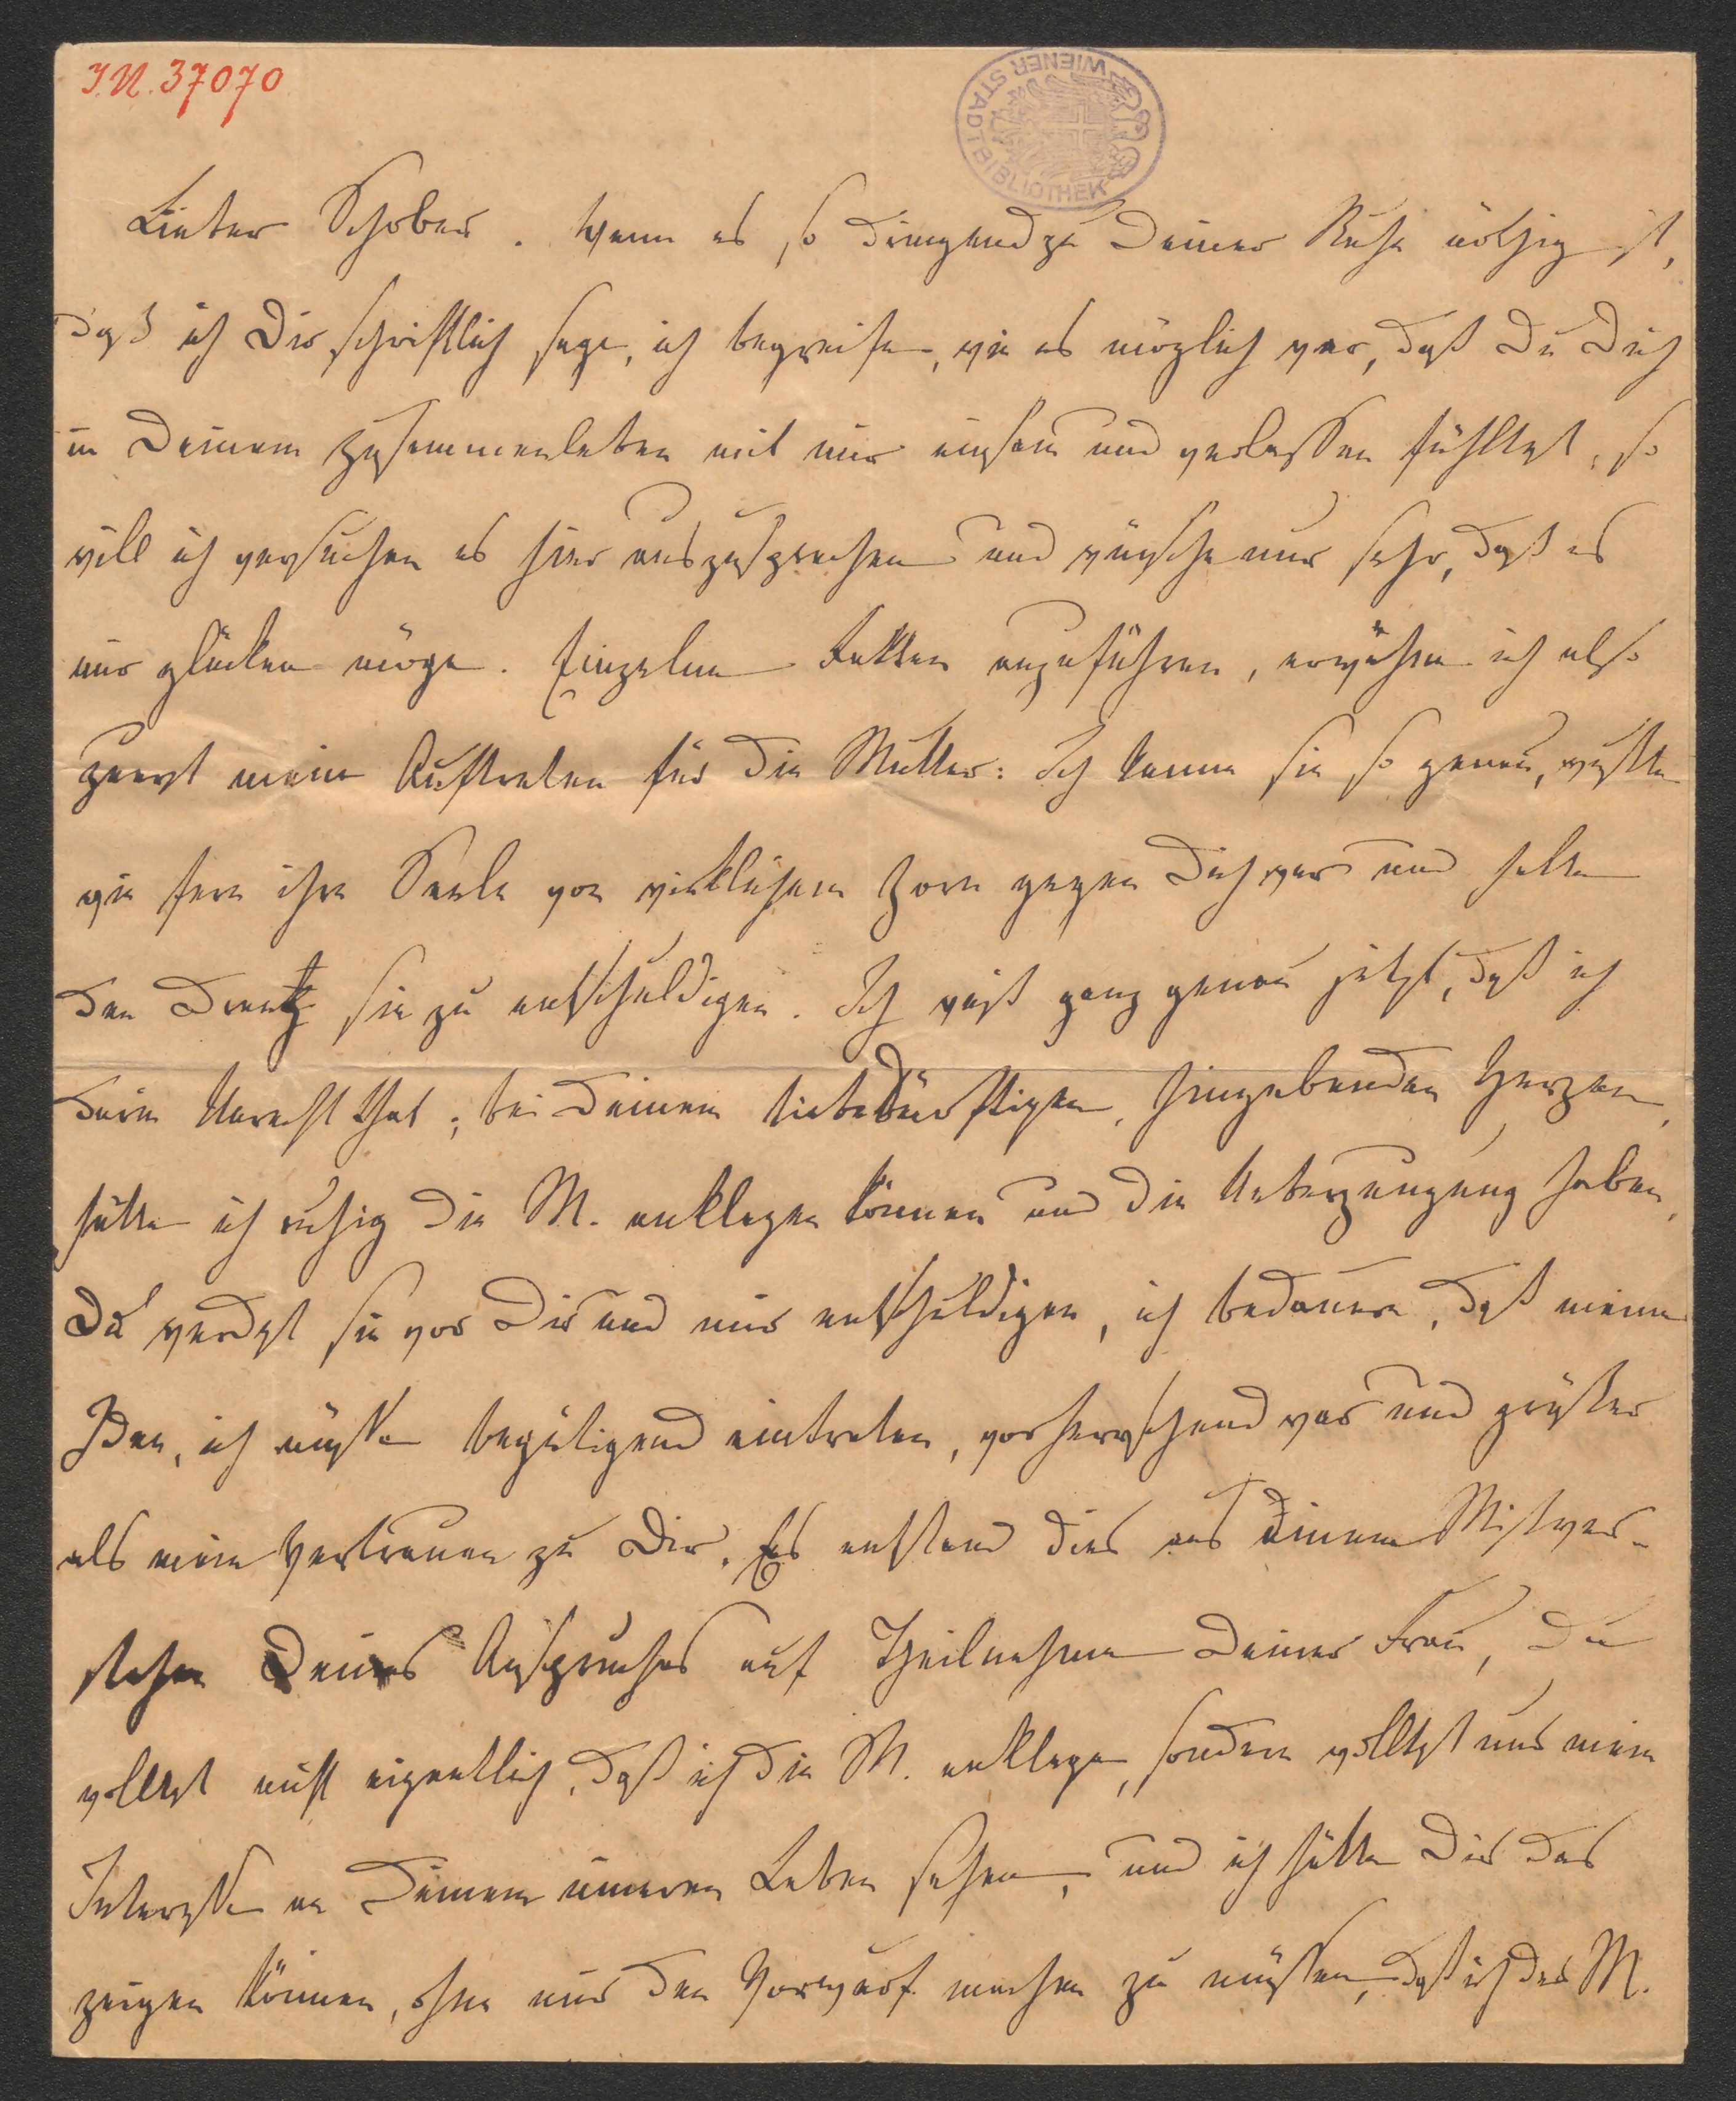 I.N. 37070
WIENER STADTBIBLIOTHEK
Lieber Schober. Wenn es so dringend zu Deiner Ruhe nöthig ist,
daß ich Dir schriftlich sage, ich begreife, wie es möglich war, daß Du Dich
in Deinem Zusammenleben mit mir einsam und verlassen fühltest, so
will ich versuchen es hier auszusprechen und wünsche nur sehr, daß es
mir glücken möge. Einzelne Fakten anzuführen, erwähne ich also
zuerst mein Auftreten für die Mutter: Ich kenne sie so genau, wußte
wie fern ihre Seele von wirklichem Zorn gegen Dich war und hatte
den Drang sie zu entschuldigen. Ich weiß ganz genau jetzt, daß ich
darin Unrecht that; bei Deinem liebebedürftigen, hingebenden Herzen,
hätte ich ruhig die M. anklagen können und die Ueberzeugung haben,
Du werdest sie vor Dir und mir entschuldigen, ich bedaure, daß meine
Idee, ich müßte begütigend eintreten, vorherrschend war und größer
als mein Vertrauen zu Dir. Es entstand dies aus einem Mißver-
stehen Deines Anspruches auf Theilnahme Deiner Frau, Du
wolltest nicht eigentlich, daß ich die M. anklage, sondern wolltest nur mein
Interesse an Deinem inneren Leben sehen, und ich hätte Dir das
zeigen können, ohne mir den Vorwurf machen zu müssen, daß ich der M.